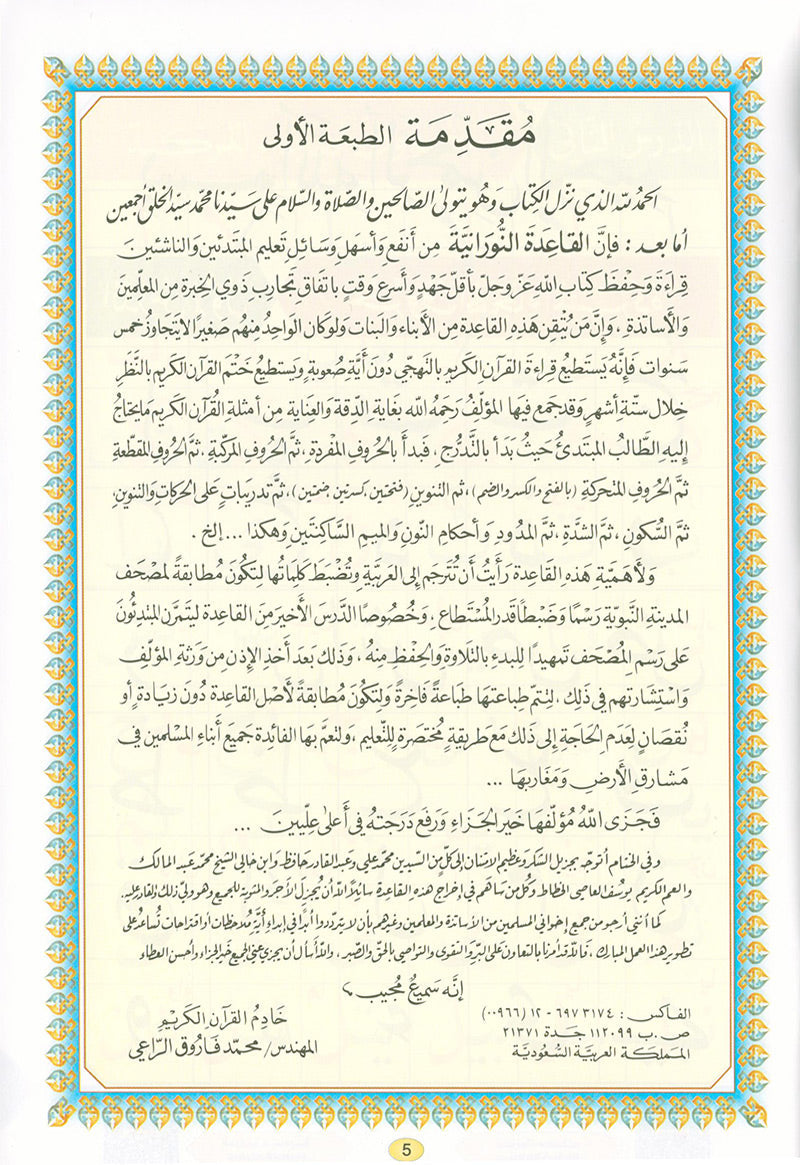 مُقَدِّمَة الطبعَة الأولى
الحمدُ للّه الذي نزّل الكِتاب وَهُو يَتولى الصّالحين والصّلاة والسّلام على سَيّدنا محمّد سيّد الخلق أجمعين
أما بعد : فإنَّ القَاعِدَة النُّورَانيَّة مِن أنفَع وَأسهَل وَسَائل تَعليم المبتدئين والناشئين
قِراءَة وَحِفظ كِتاب اللهِ عَزّ وجلّ بأقلّ جَهْدٍ وَأسرع وَقتٍ باتفَاق تَجَارب ذَوي الخِبرة مِن المعلّمين
وَالأسَاتذة ، وَإنَّ مَن يُتْقِن هَذِهِ القَاعِدة مِن الأبناء والبنات وَلو كان الوَاحِد مِنهُم صَغيرًا لا يَتجاوزُ خمس
سَنوات فَإنَّهُ يَستطيعُ قِراءة القرآن الكريم بالتهجّي دُون أيّة صُعوبة وَيستطيعُ خَتْم القرآن الكَريم بالنَّظَرِ
خِلال ستّة أشهرٍ وَقد جمع فيها المؤلّفُ رَحِمَهُ الله بغَاية الدّقة والعِناية مِن أمثلة القُرآن الكَريم مَا يَحتاجُ
إليهِ الطَّالبُ المبتدئُ حيثُ بَدَأ بالتَّدرُّج ، فَبدأ بالحُروف المُفْردة ، ثُمَّ الحُروف المركّبة ، ثمَّ الحُروف المقطّعة
ثمَّ الحُروف المتحركة (بالفتح والكسر والضم) ، ثم التنوين (فتحتين، كسرتين، ضمتين) ، ثمَّ تدريبات عَلى الحركات والتنوين،
ثمَّ السُّكون ، ثمَّ الشدَّة ، ثمَّ المدُود وَأحكام النّون والميم السَّاكنتَين وَهكذا ... إلخ .
وَلأهَمّيَّة هَذِه القَاعِدة رَأيتُ أن تُتَرجم إلى العَربيَّة وَتُضْبَط كَلِماتُها لتَكُونَ مُطابقةً لمصْحَف
المدينةِ النَّبويّةِ رَسْمًا وَضَبْطًا قَدر المُسْتطاع ، وَخُصُوصًا الدَّرس الأخير مِنَ القاعِدة ليتمَرّن المبتدِئُونَ
عَلى رَسْم المُصْحَف تمهيدًا للبدء بالتلاوة والحِفظ مِنهُ ، وَذلك بَعدَ أخذِ الإذن مِن وَرثة المؤلّف
وَاستشارتهم في ذَلك ، لِتتمّ طِباعتها طَباعةً فَاخِرةً وَلتكُون مُطابقةً لأصْل القاعدة دُون زيَادة أو
نُقصَانٍ لِعَدم الحَاجة إلى ذَلك مَع طَريقةٍ مُختصرةٍ للتَّعليم ، وَلتعُمّ بهَا الفائدة جَميعَ أبناء المسْلمين في
مَشَارق الأرض وَمَغاربهَا ...
فَجَزى اللّهُ مُؤلّفهَا خَيرَ الجَزاء وَرفَع دَرَجتهُ في أعلى عِلّيينَ ...
وفي الختام أتوجّه بجزيل الشكر وعظيم الامتنان إلى كلّ من السّيدين محمّد علي وعَبد القادر حَافظ وَابن خالي الشيخ محمّد عَبد المالك
والعم الكريم يوسُف العاصي الخطاط وكُل من سَاهم في إخراج هذه القاعدة سَائلاً اللّه أن يُجزلَ الأجر والمثوبة للجميع وهو وليّ ذلك والقادر عليه.
كما أنني أرجو من جميع إخواني المسلمين من الأساتذة والمعلمين وغيرهم بأن لا يتردّدوا أبدًا في إبداء أيّة مُلاحظات أو اقتراحات تُسَاعدُ على
تطوير هذا العمل المبارك ، فالله قد أمرنا بالتعاون على البِرّ والتقوى والتواصي بالحقّ والصّبر ، والله أسأل أن يجزي عنّي الجميع خَير الجزاء وأحسن العطاء
إنَّه سَميعٌ مُجيب
الفاكس : ٦٩٧٣١٧٤ - ١٢ (٠٠٩٦٦)
ص . ب ١١٢٠٩٩ جَدة ٢١٣٧١
المَملكَة العَربيَّة السُّعُوديَّة
خَادِمُ القُرآن الكَريْم
المهندس/ محمّد فَاروق الرّاعي
5